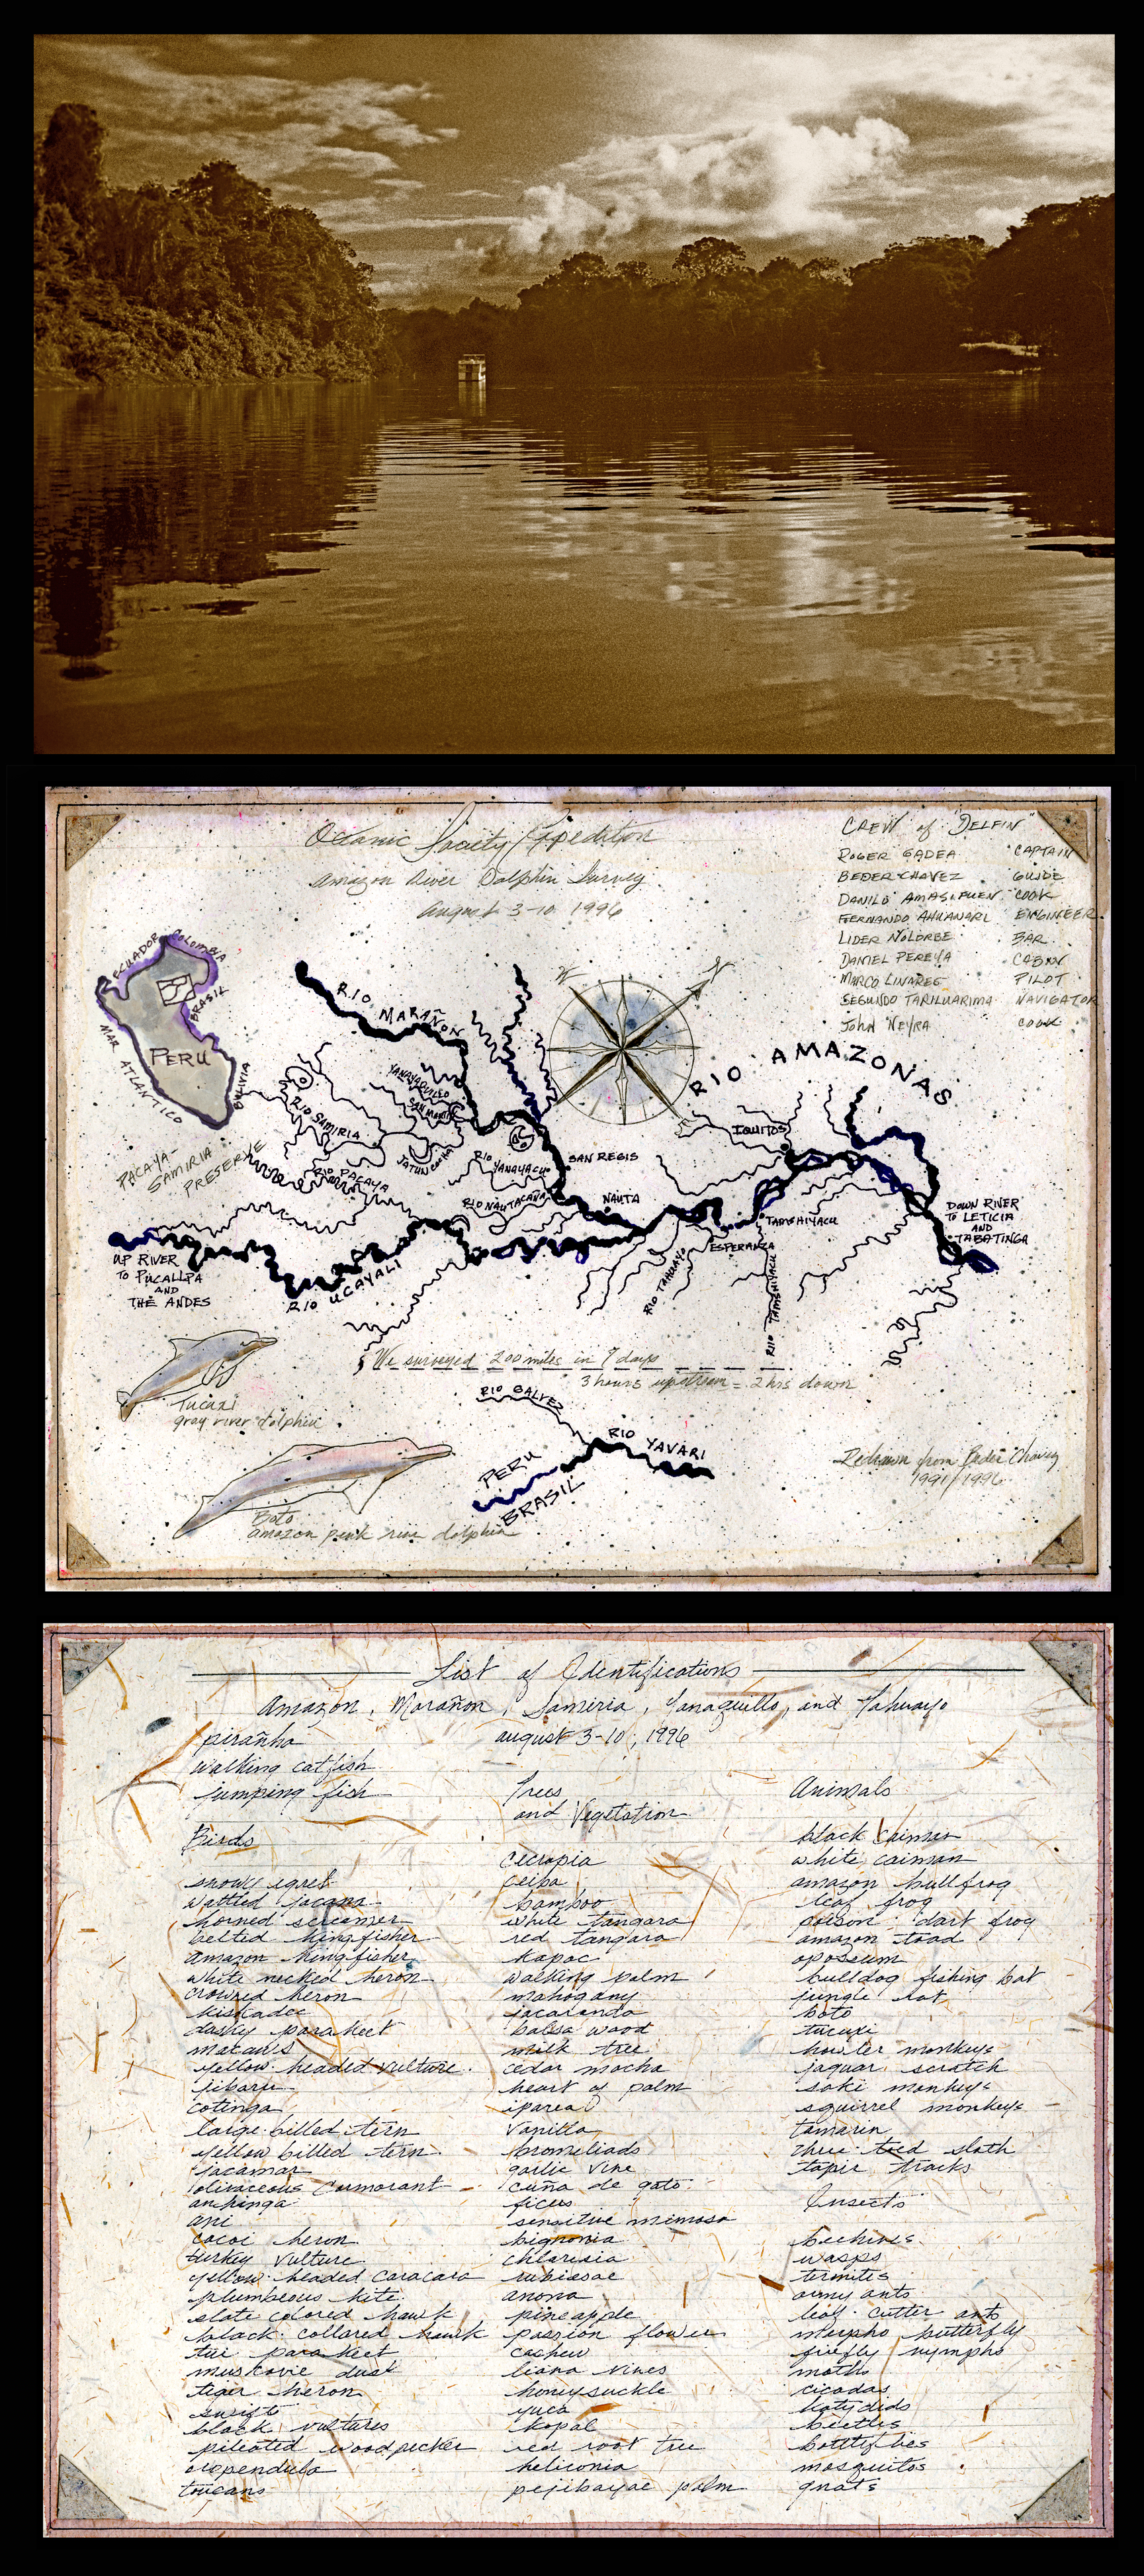 Oceanic Society Expedition
Amazon River Dolphin Survey
August 3-10 1996
CREW of "DELFIN"
ROGER GADEA CAPTAIN
BEDER CHAVEZ GUIDE
DANILO AMASIFUEN COOK
FERNANDO AHUANARI ENGINEER
LIDER NOLORBE BAR
DANIEL PEREYA CABIN
MARCO LINARES PILOT
SEGUNDO TARILUARIMA NAVIGATOR
JOHN NEYRA COOK
ECUADOR
COLOMBIA
BRASIL
PERU
MAR ATLANTICO
BOLIVIA
PACAYA-
SAMIRIA
PRESERVE
RIO MARAÑON
W
N
RIO AMAZONAS
YANAYAQUILLO
SAN MARTIN
RIO SAMIRIA
RIO PACAYA
RIO YANAYACU
SAN REGIS
RIO NAUTACAÑA
NAUTA
IQUITOS
TAMSHIYACU
ESPERANZA
RIO TAHUAYO
RIO TAMSHIYACU
DOWN RIVER
TO LETICIA
AND
TABATINGA
UP RIVER
TO PUCALLPA
AND
THE ANDES
RIO UCAYALI
We surveyed 200 miles in 7 days
3 hours upstream = 2 hrs down
Tucuxi
gray river dolphin
RIO GALVEZ
RIO YAVARI
PERU
BRASIL
Boto
amazon pink river dolphin
Redrawn from Beder Chavez
1991/1996
List of Identifications
Amazon, Marañon, Samiria, Yanaquillo, and Tahuayo
august 3-10, 1996
piranha
walking catfish
jumping fish
Birds
snowy egret
wattled jacana
horned screamer
belted kingfisher
amazon kingfisher
white necked heron
crowned heron
kiskadee
dusky parakeet
macaws
yellow headed vulture
jibaru
cotinga
large billed tern
yellow billed tern
jacamar
olivaceous cormorant
anhinga
ani
cocoi heron
turkey vulture
yellow headed caracara
plumbeous kite
slate colored hawk
black collared hawk
tui parakeet
muskovie duck
tiger heron
swift
black vultures
pileated woodpecker
oropendula
toucans
Trees
and Vegetation
cecropia
ceiba
bamboo
white tangara
red tangara
kapoc
walking palm
mahogany
jacaranda
balsa wood
milk tree
cedar mocha
heart of palm
iparea
vanilla
bromeliads
garlic vine
cuña de gato
ficus
sensitive mimosa
bignonia
chlorisia
rubiesae
anona
pineapple
passion flower
cashew
liana vines
honeysuckle
yuca
kopal
red root tree
heliconia
pejibayae palm
Animals
black caiman
white caiman
amazon bullfrog
leaf frog
poison dart frog
amazon toad
opossum
bulldog fishing bat
jungle rat
boto
tucuxi
howler monkeys
jaguar scratch
saki monkeys
squirrel monkeys
tamarin
three toed sloth
tapir tracks
Insects
beehives
wasps
termites
army ants
leaf cutter ants
morpho butterfly
firefly nymphs
moths
cicadas
katydids
beetles
bottlflies
mosquitos
gnats